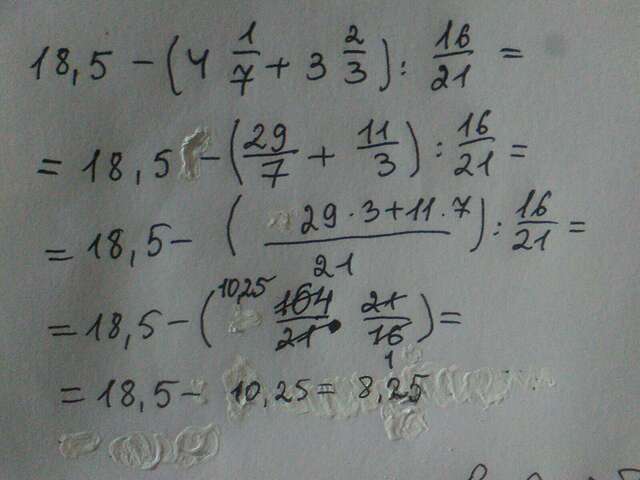 18,5 - (4 1/7 + 3 2/3) : 16/21 =
= 18,5 - (29/7 + 11/3) : 16/21 =
= 18,5 - (29·3+11·7/21) : 16/21 =
= 18,5 - (10,25 164/21 · 21/16 1) =
= 18,5 - 10,25 = 8,25